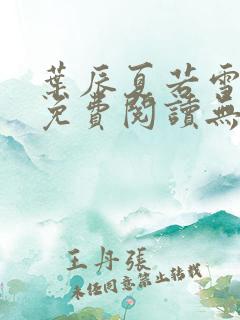 葉辰夏若雪
免費閱讀無
王丹張
未经同意禁止转载